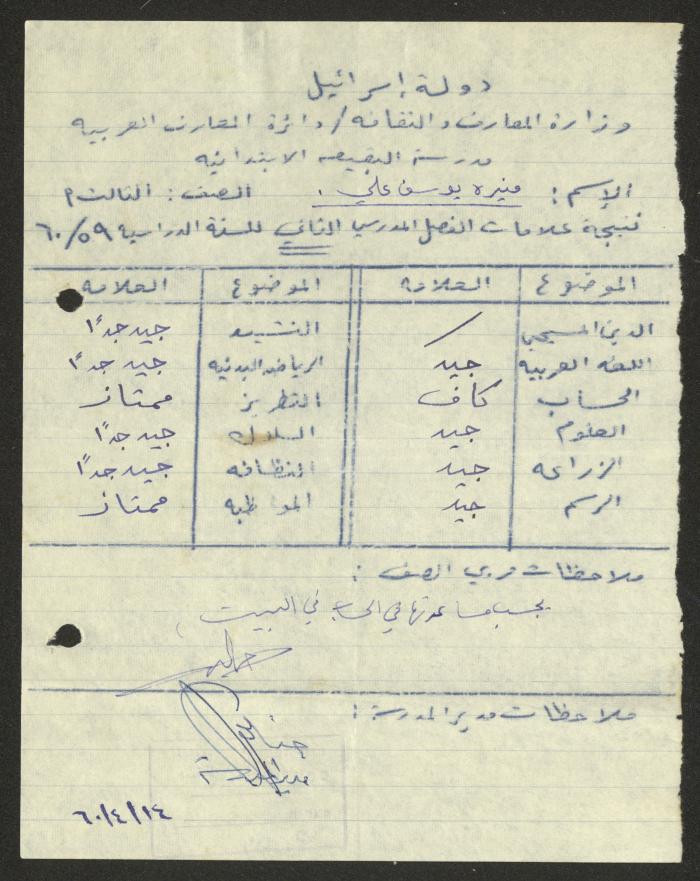 دولة إسرائيل
وزارة المعارف والثقافه / دائرة المعارف العربيه
مدرسة البقيعه الابتدائيه
الإسم : منيره يوسف علي . الصف : الثالث م
نتيجة علامات الفصل المدرسي الثاني للسنة الدراسيه ٦٠/٥٩
الموضوع العلامه الموضوع العلامه
الدين المسيحي / النشيد جيد جدًا
اللغه العربيه جيد الرياضه البدنيه جيد جدًا
الحساب كاف التطريز ممتاز
العلوم جيد السلوك جيد جدًا
الزراعه جيد النظافه جيد جدًا
الرسم جيد المواظبه ممتاز
ملاحظات مربي الصف :
يجب مساعدتها في الحساب في البيت
ملاحظات مدير المدرسة :
حنا
مدير المدرسة
٦٠/٤/١٤